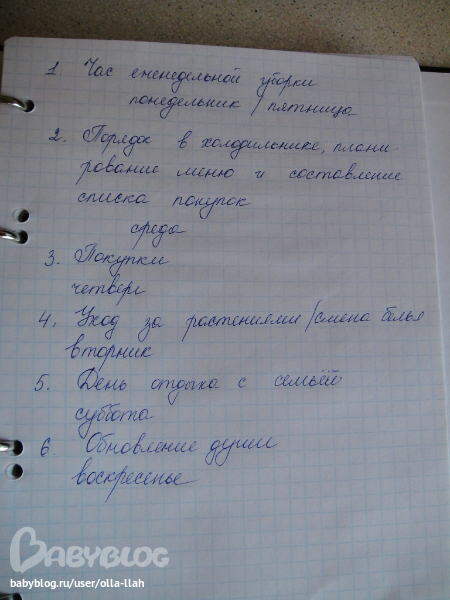 1. Час еженедельной уборки
понедельник / пятница
2. Порядок в холодильнике, плани-
рование меню и составление
списка покупок
среда
3. Покупки
четверг
4. Уход за растениями/смена белья
вторник
5. День отдыха с семьёй
суббота
6. Обновление души
воскресенье
BABYBLOG
babyblog.ru/user/olla-llah